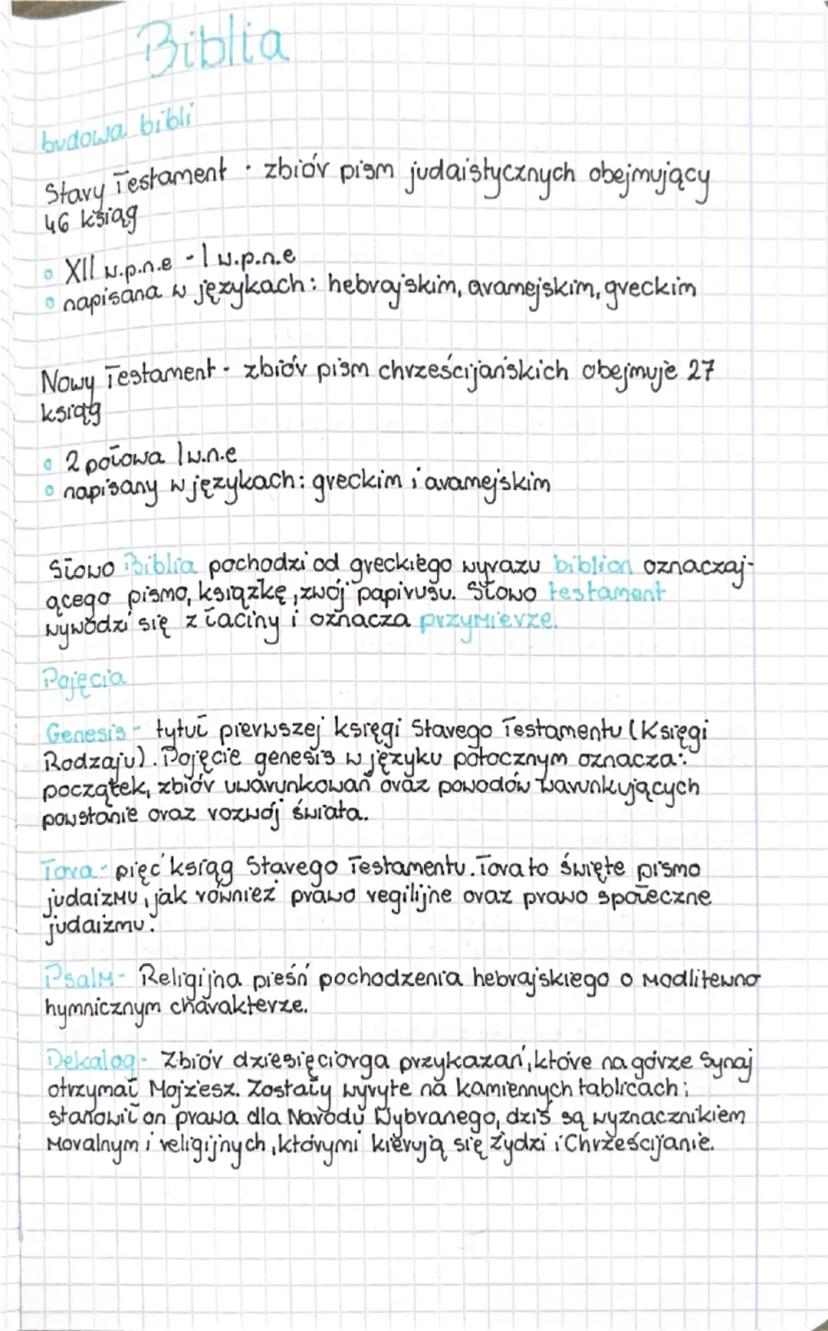 Biblia
budowa bibli
Stary Testament - zbiór pism judaistycznych obejmujący
46 ksiąg
XII w.p.n.e - I w.p.n.e
napisana w językach: hebrajskim, aramejskim, greckim
Nowy Testament - zbiór pism chrześcijańskich obejmuje 27
ksiąg
2 połowa I w.n.e
napisany w językach: greckim i aramejskim
Słowo Biblia pochodzi od greckiego wyrazu biblion oznaczaj-
ącego pismo, książkę, zwój papirusu. Słowo testament
wywodzi się z łaciny i oznacza przymierze.
Pojęcia
Genesis - tytuł pierwszej księgi Starego Testamentu (Księgi
Rodzaju). Pojęcie genesis w języku potocznym oznacza:
początek, zbiór uwarunkowań oraz powodów warunkujących
powstanie oraz rozwój świata.
Tora - pięć ksiąg Starego Testamentu. Tora to święte pismo
judaizmu, jak również prawo regilijne oraz prawo społeczne
judaizmu.
Psalm - Religijna pieśń pochodzenia hebrajskiego o modlitewno
hymnicznym charakterze.
Dekalog - Zbiór dziesięciorga przykazań, które na górze Synaj
otrzymał Mojżesz. Zostały wyryte na kamiennych tablicach;
stanowił on prawa dla Narodu Wybranego, dziś są wyznacznikiem
moralnym i religijnych, którymi kierują się Żydzi i Chrześcijanie.